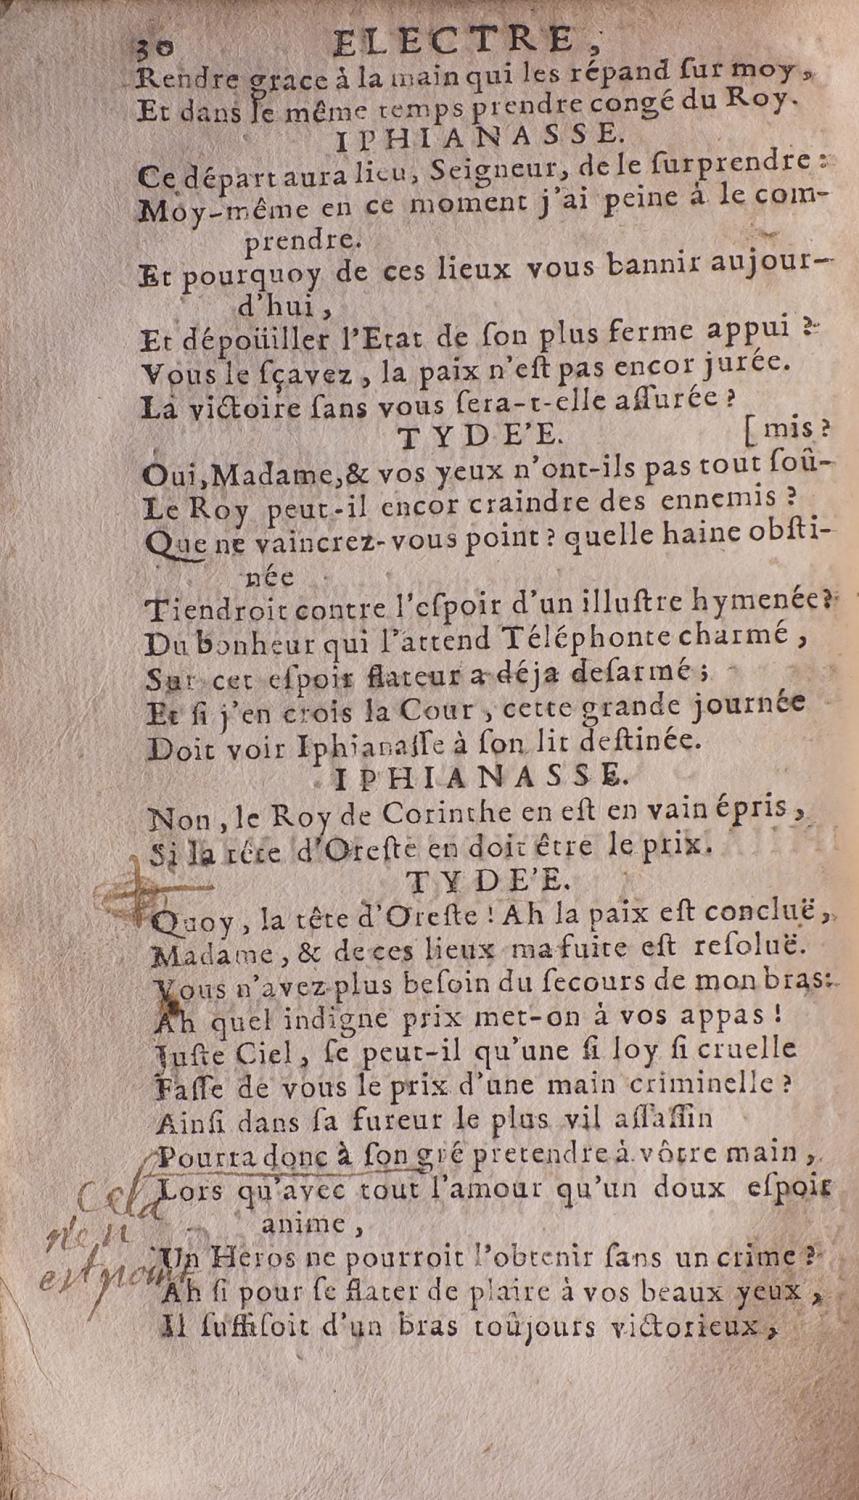 30 ELECTRE,
Rendre grace à la main qui les répand ſur moy,
Et dans le même temps prendre congé du Roy.
IPHIANASSE.
Ce départ aura lieu, Seigneur, de le ſurprendre :
Moy-même en ce moment j'ai peine à le com-
prendre.
Et pourquoy de ces lieux vous bannir aujour-
d'hui,
Et dépoüiller l'Etat de ſon plus ferme appui ?
Vous le ſçavez, la paix n'eſt pas encor jurée.
La victoire ſans vous ſera-t-elle aſſurée ?
TYDE'E. [ mis ?
Oui, Madame, & vos yeux n'ont-ils pas tout ſoû-
Le Roy peut-il encor craindre des ennemis ?
Que ne vaincrez-vous point ? quelle haine obſti-
née
Tiendroit contre l'eſpoir d'un illuſtre hymenée ?
Du bonheur qui l'attend Téléphonte charmé,
Sur cet eſpoir flateur a déja deſarmé;
Et ſi j'en crois la Cour, cette grande journée
Doit voir Iphianaſſe à ſon lit deſtinée.
IPHIANASSE.
Non, le Roy de Corinthe en eſt en vain épris,
Si la tête d'Oreſte en doit être le prix.
TYDE'E.
Quoy, la tête d'Oreſte ! Ah la paix eſt concluë,
Madame, & de ces lieux ma fuite eſt reſoluë.
Vous n'avez plus beſoin du ſecours de mon bras:
Ah quel indigne prix met-on à vos appas !
Juſte Ciel, ſe peut-il qu'une ſi loy ſi cruelle
Faſſe de vous le prix d'une main criminelle ?
Ainſi dans ſa fureur le plus vil aſſaſſin
Pourra donc à ſon gré pretendre à vôtre main,
Lors qu'avec tout l'amour qu'un doux eſpoir
anime,
Un Heros ne pourroit l'obtenir ſans un crime ?
Ah ſi pour ſe flater de plaire à vos beaux yeux,
Il ſuffiſoit d'un bras toûjours victorieux,